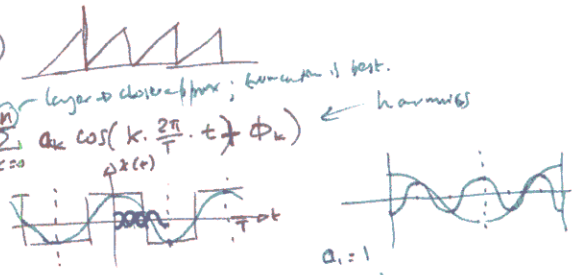 n larger → closer approx ; truncation is best.
Σ aₖ cos( k · 2π/T · t + ϕₖ) ← harmonics
k=0
x(t)
T t
a₁ = 1